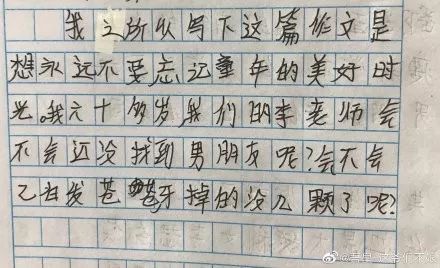 我之所以写下这篇作文是
想永远不要忘记童年的美好时
光。我六十多岁我们的李老师会
不会还没找到男朋友呢?会不会
已白发苍苍牙掉的没几颗了呢?